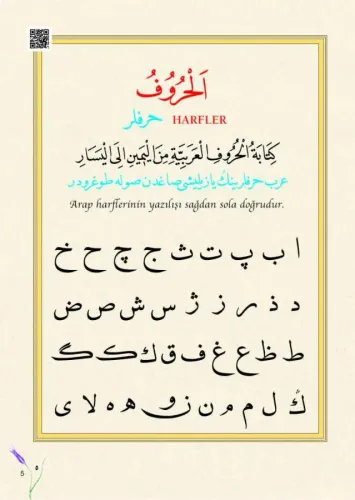 اَلْحُرُوفُ
حرفلر HARFLER
كِتَابَةُ الْحُرُوفِ الْعَرَبِيَّةِ مِنَ الْيَمِينِ اِلَى الْيَسَارِ
عرب حرفلرينڭ يازيليشى صاغدن صوله طوغرودر
Arap harflerinin yazılışı sağdan sola doğrudur.
ا ب پ ت ث ج چ ح خ
د ذ ر ز ژ س ش ص ض
ط ظ ع غ ف ق ك ک گ
ڭ ل م م ن ن و ه ه لا ى
5 ٥